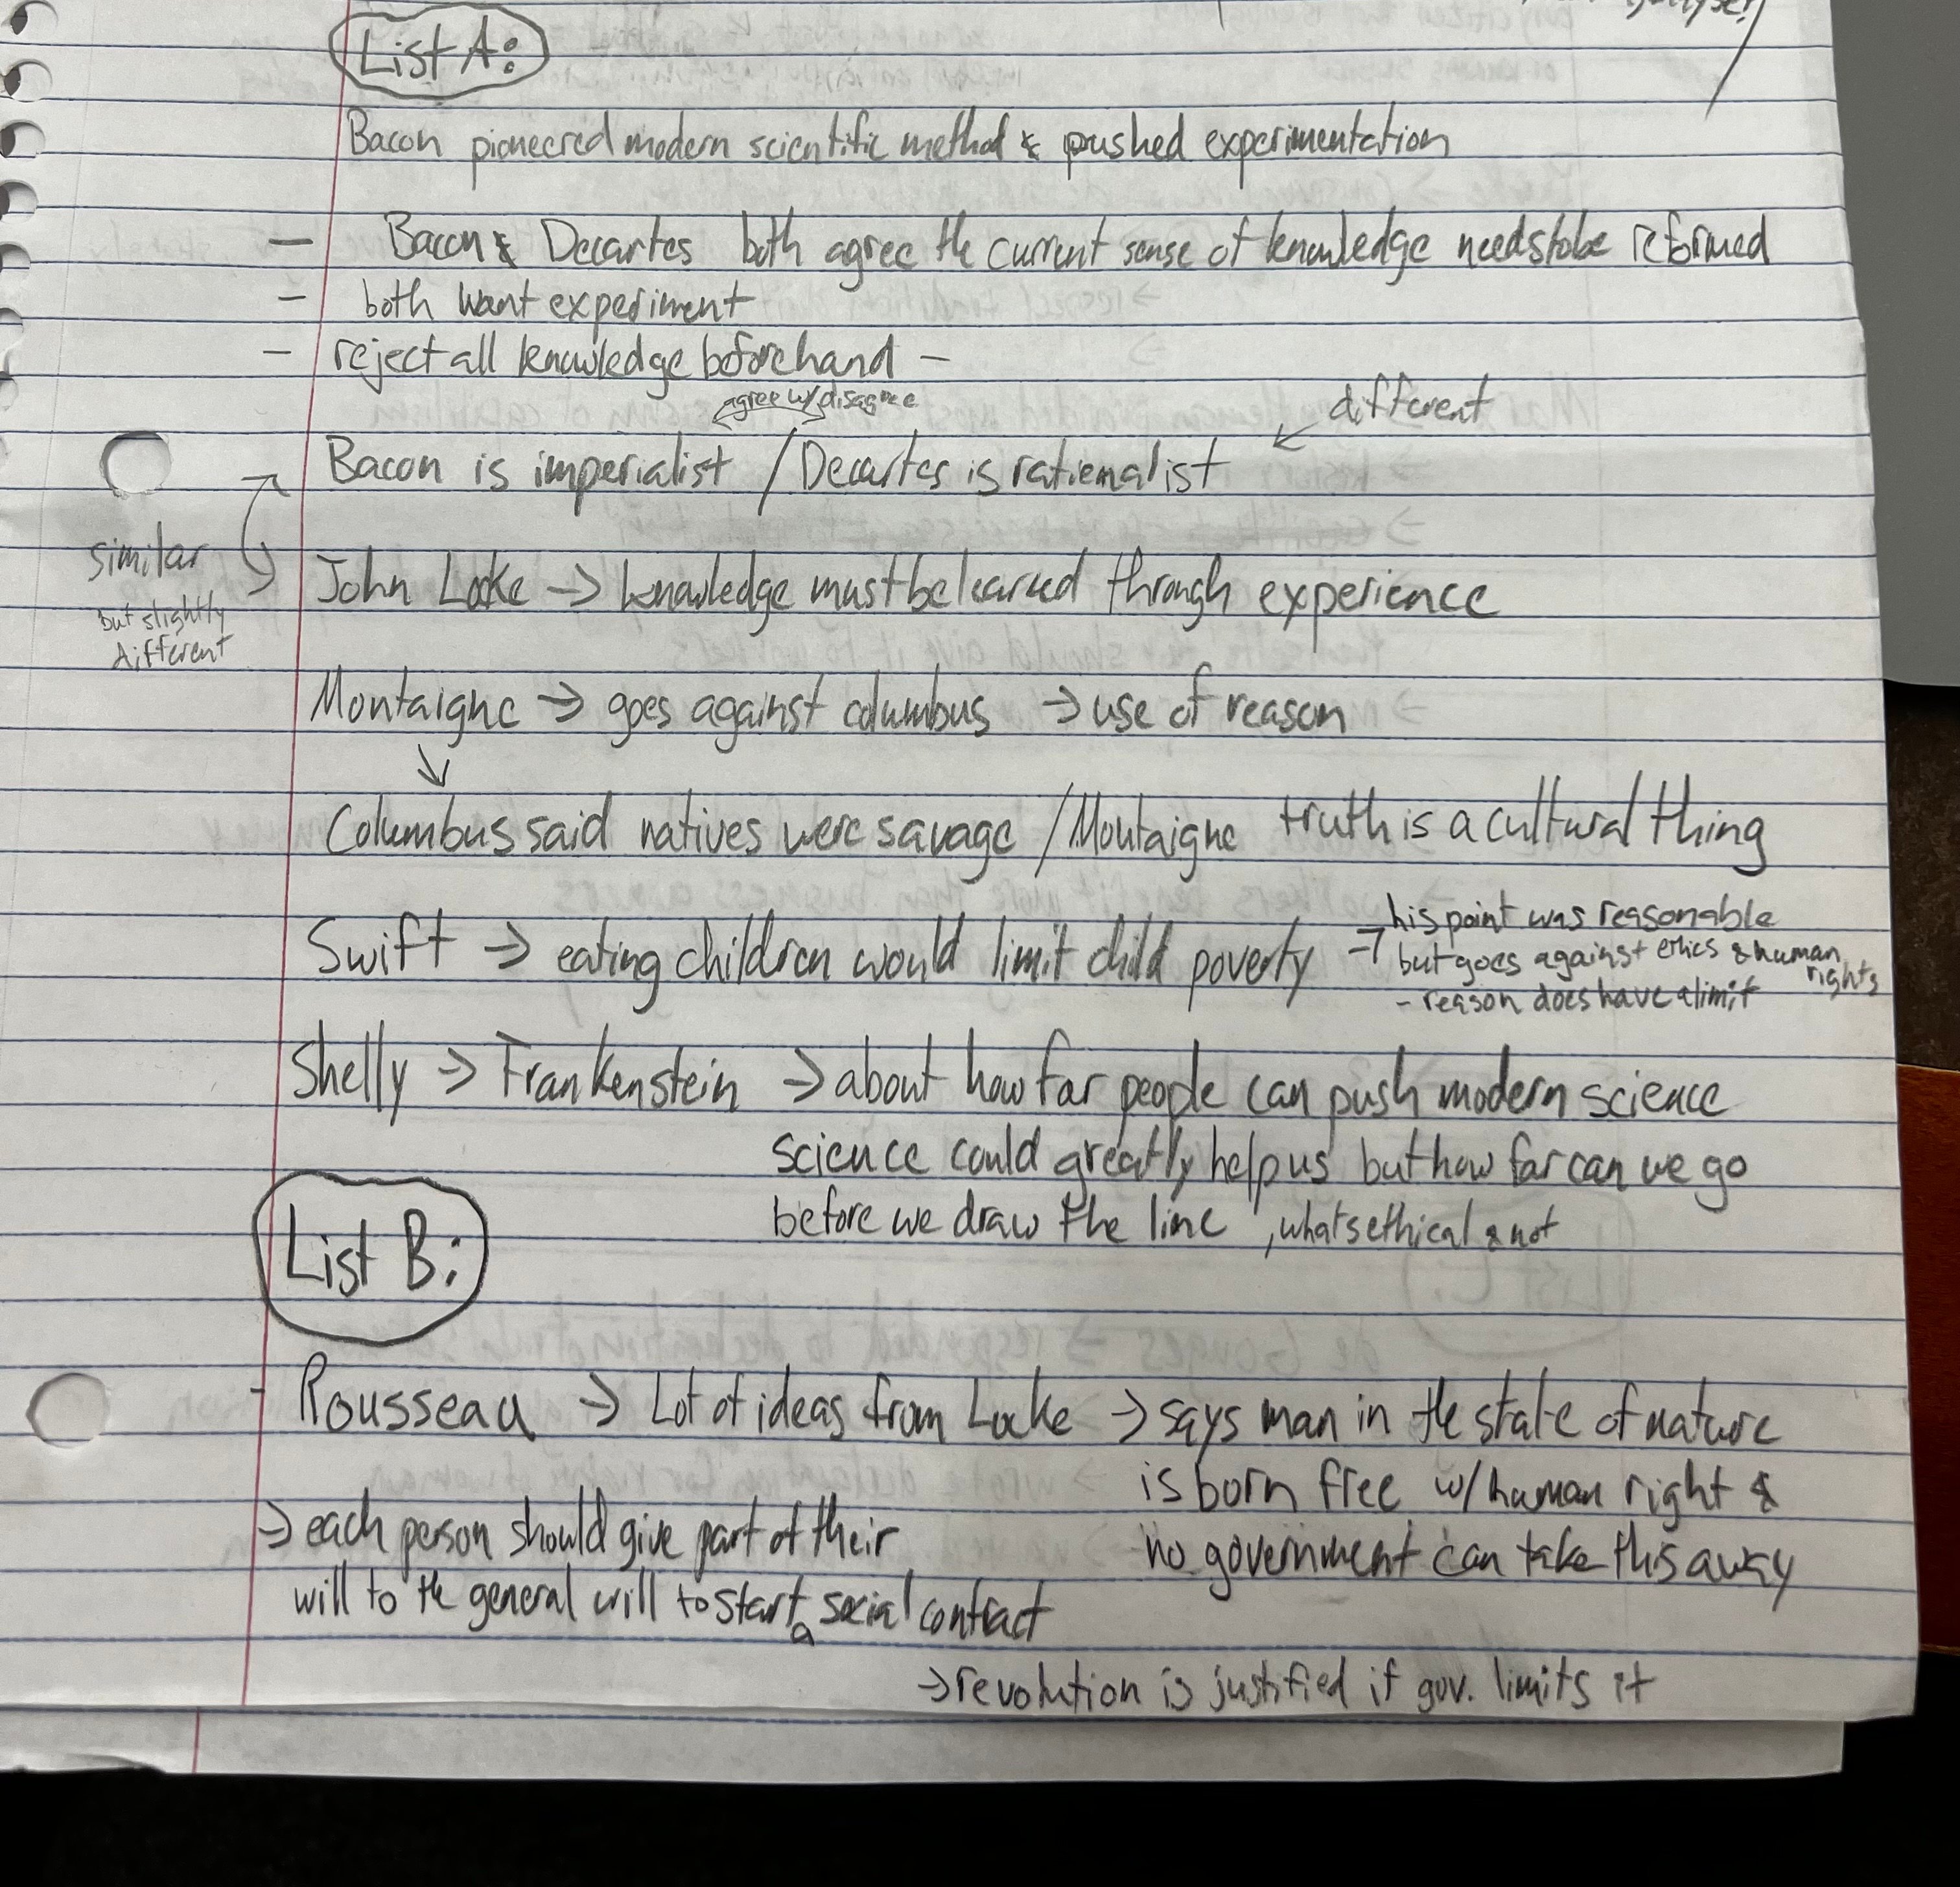 List A:
Bacon pioneered modern scientific method & pushed experimentation
— Bacon & Decartes both agree the current sense of knowledge needs to be reformed
– both want experiment
– reject all knowledge beforehand –
agree w/ disagree
different
Bacon is imperialist / Decartes is rationalist
similar
but slightly
different
John Locke → knowledge must be learned through experience
Montaigne → goes against columbus → use of reason
↓
Columbus said natives were savage / Montaigne truth is a cultural thing
Swift → eating children would limit child poverty → his point was reasonable
but goes against ethics & human
rights
- reason does have a limit
Shelly → Frankenstein → about how far people can push modern science
science could greatly help us but how far can we go
before we draw the line, whats ethical & not
List B:
- Rousseau → Lot of ideas from Locke → says man in the state of nature
is born free w/ human right &
no government can take this away
→ each person should give part of their
will to the general will to start a social contract
→ revolution is justified if gov. limits it